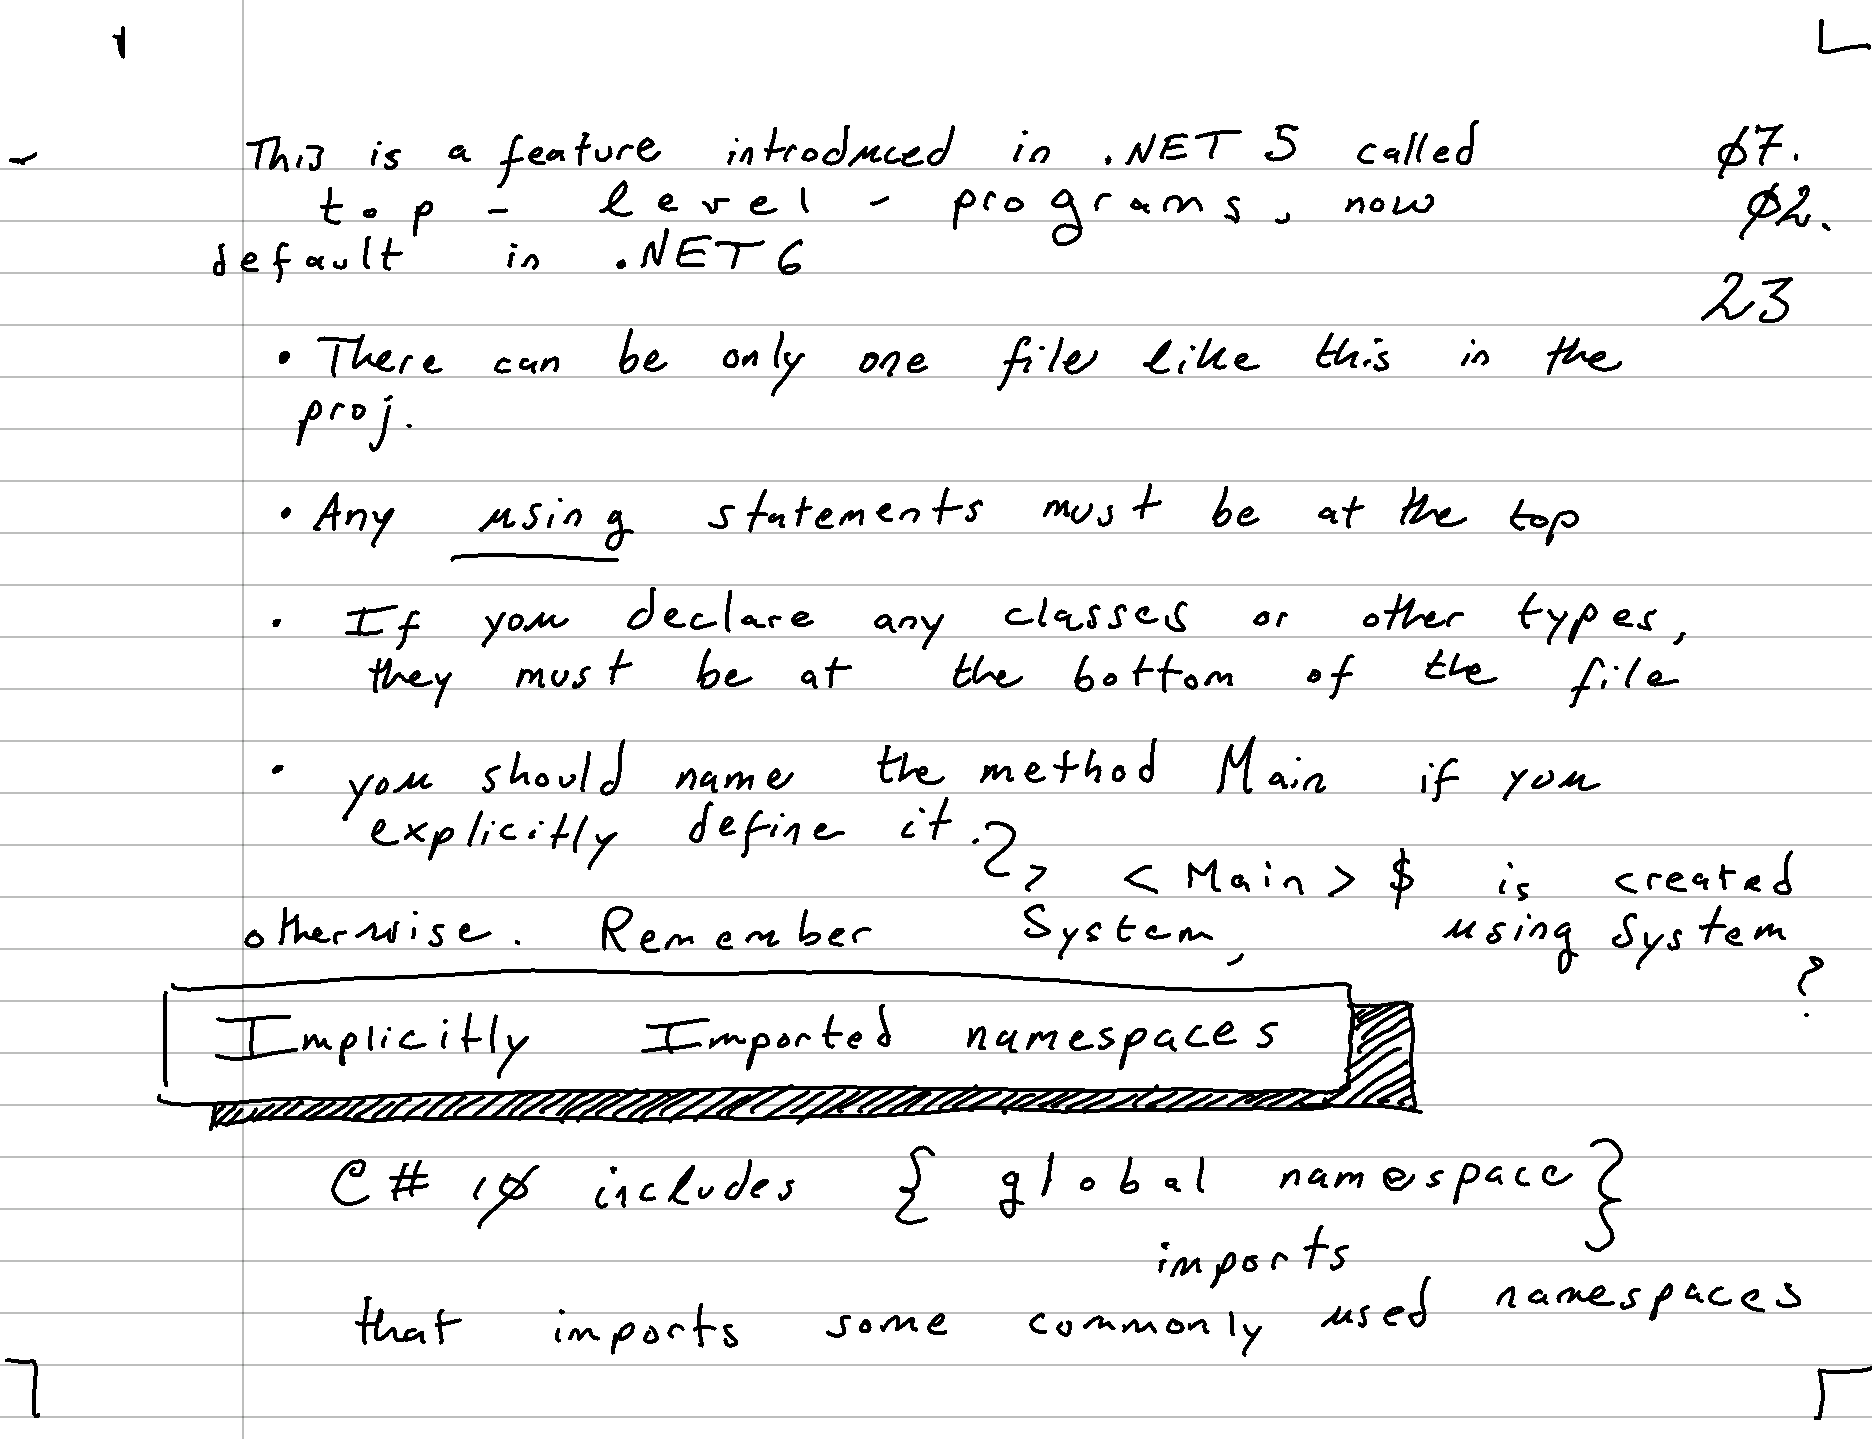 This is a feature introduced in .NET 5 called Ø7.
top-level-programs, now Ø2.
default in .NET 6
23
• There can be only one file like this in the
proj.
• Any using statements must be at the top
• If you declare any classes or other types,
they must be at the bottom of the file
• you should name the method Main if you
explicitly define it.
<Main>$ is created
otherwise. Remember System, using System
?
Implicitly Imported namespaces
C# 1Ø includes { global namespace }
imports
that imports some commonly used namespaces